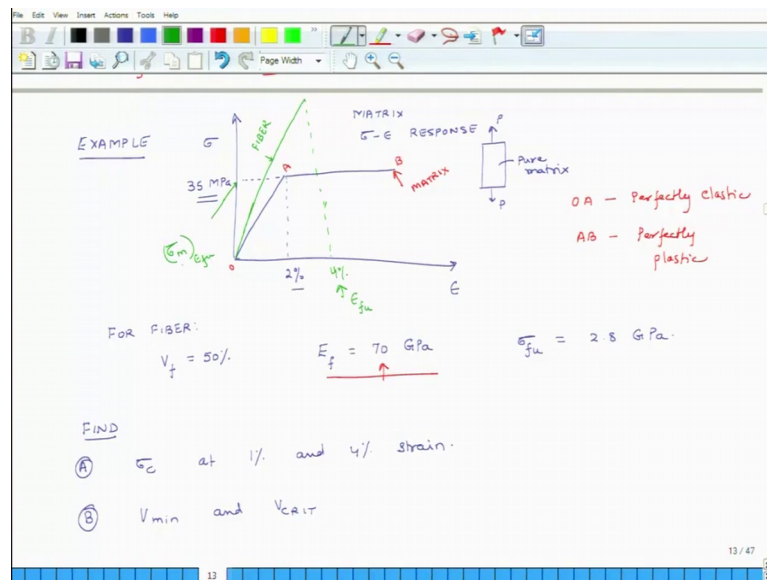 File Edit View Insert Actions Tools Help
B I
Page Width
EXAMPLE
σ
FIBER
MATRIX
σ-ε RESPONSE
P
Pure matrix
P
35 MPa
A
B
MATRIX
OA — Perfectly elastic
AB — Perfectly plastic
(σm)εfu
O
2%
4%
εfu
ε
FOR FIBER:
Vf = 50%.
Ef = 70 GPa
σfu = 2.8 GPa.
FIND
A σc at 1% and 4% strain.
B Vmin and VCRIT
13 / 47
13